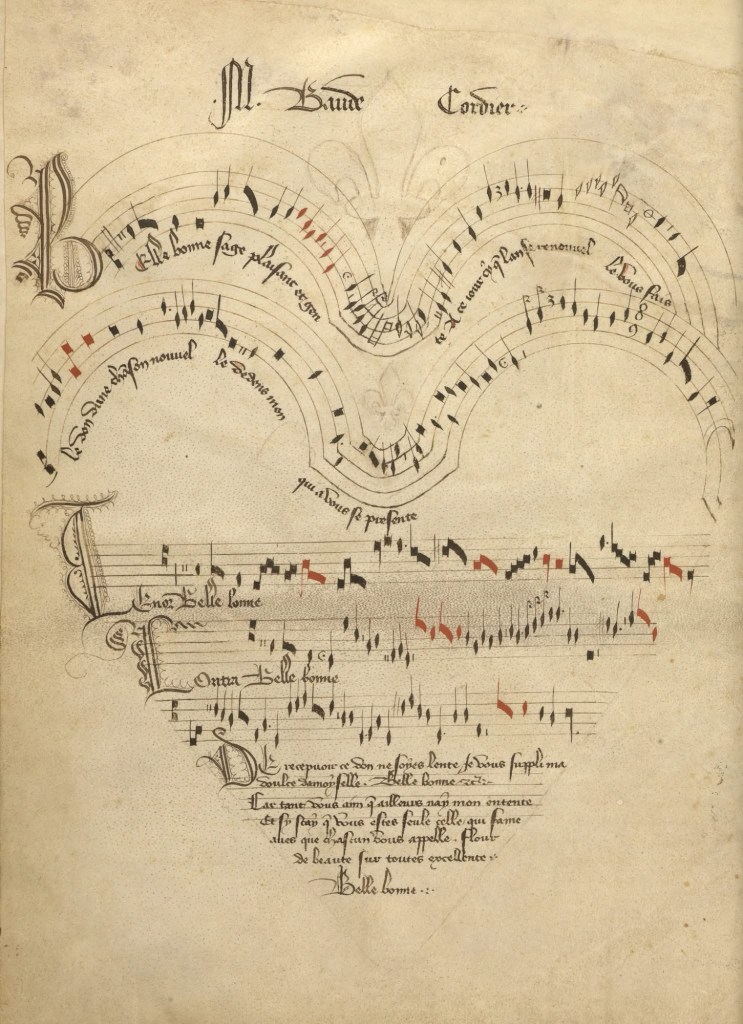 M. Baude Cordier
Belle bonne sage plaisant et gen
te A ce jour cy q lan se renouvel
le vous fais
le don dune chãson nouvel
le dedens mon
qui a vous se presente
Tenor Belle bonne
Contra Belle bonne
De recepvoir ce don ne soyes lente Je vous suppli ma
doulce damoyselle. Belle bonne
Car tant vous aim q̃ ailleurs nay mon entente
Et sy scay q̃ vous estes seule celle qui fame
aves que chascun vous appelle. Flour
de beaute sur toutes excellente
Belle bonne